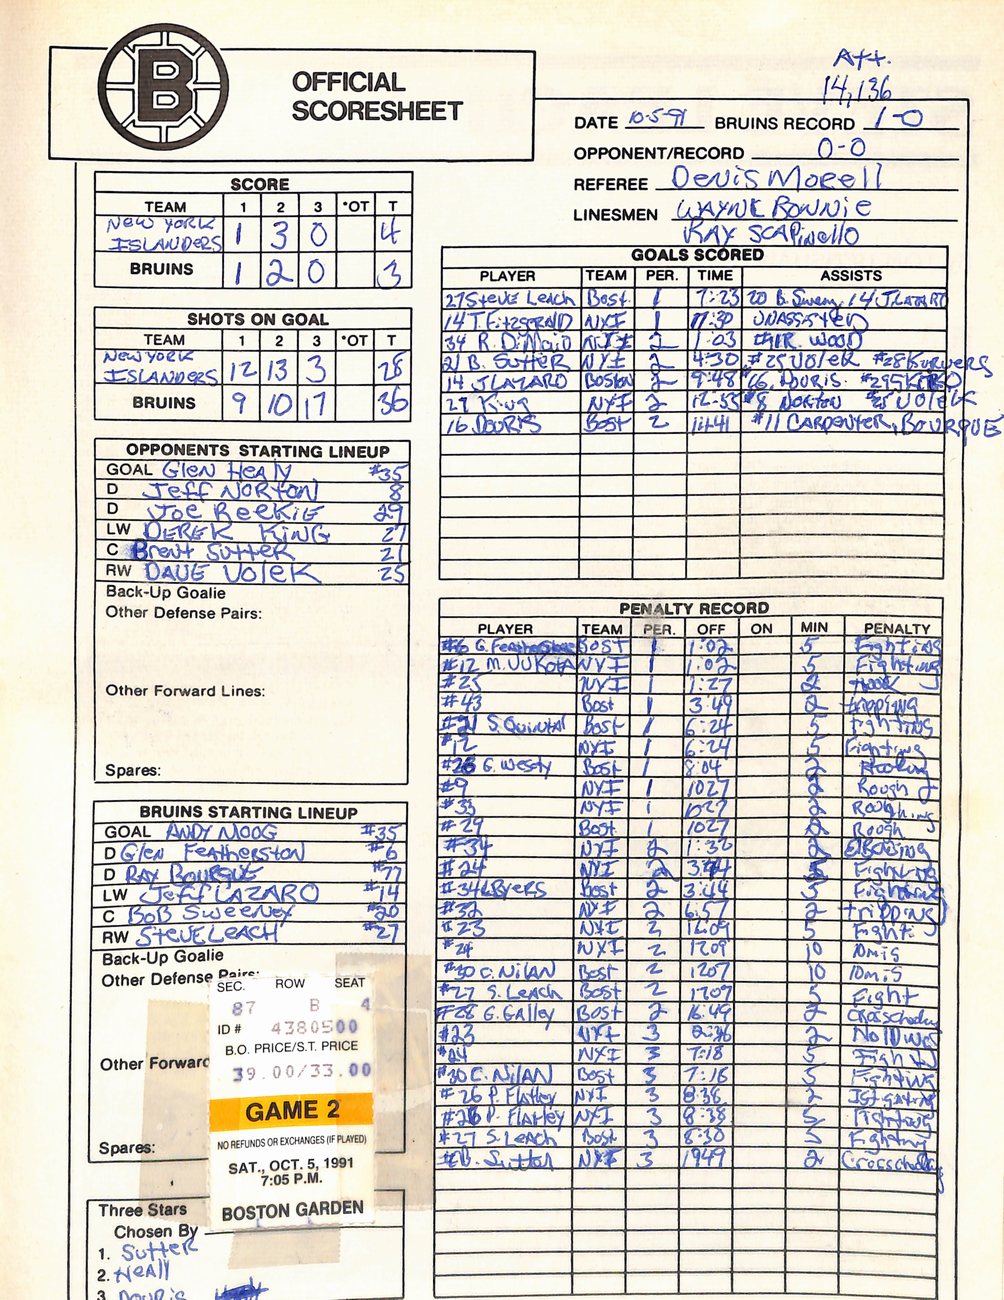 B
OFFICIAL
SCORESHEET
Att.
14,136
DATE 10-5-91 BRUINS RECORD 1-0
OPPONENT/RECORD 0-0
REFEREE Denis Morell
LINESMEN WAYNE BONNIE
RAY SCAPinello
SCORE
TEAM 1 2 3 *OT T
NEW YORK ISLANDERS 1 3 0 4
BRUINS 1 2 0 3
SHOTS ON GOAL
TEAM 1 2 3 *OT T
NEW YORK ISLANDERS 12 13 3 28
BRUINS 9 10 17 36
OPPONENTS STARTING LINEUP
GOAL Glen Healy #35
D Jeff NORTON 8
D Joe Reekie 29
LW DEREK KING 27
C Brent Sutter 21
RW DAVE VOLEK 25
Back-Up Goalie
Other Defense Pairs:
Other Forward Lines:
Spares:
BRUINS STARTING LINEUP
GOAL ANDY MOOG #35
D Glen Featherston #6
D RAY BOURQUE #77
LW Jeff LAZARO #14
C BOB Sweeney #20
RW STEVE LEACH #27
Back-Up Goalie
Other Defense Pairs:
Other Forward
Spares:
SEC. ROW SEAT
87 B 4
ID # 4380500
B.O. PRICE/S.T. PRICE
39.00/33.00
GAME 2
NO REFUNDS OR EXCHANGES (IF PLAYED)
SAT., OCT. 5, 1991
7:05 P.M.
BOSTON GARDEN
Three Stars
Chosen By
1. Sutter
2. Heally
3. DOURIS
GOALS SCORED
PLAYER TEAM PER. TIME ASSISTS
27 Steve Leach Bost 1 7:23 20 B. Sweny, 14 J LAZARO
14 T. Fitzgerald NYI 1 11:30 UNASSISTED
34 R. DiMaio NYI 2 1:03 #11 R. WOOD
21 B. Sutter NYI 2 4:30 #25 VOLEK #28 KURVERS
14 J LAZARO BOSTON 2 9:48 #16 DOURIS
27 King NYI 2 12:55 #8 NORTON #25 VOLEK
16 DOURIS Bost 2 14:41 #11 CARPENTER, BOURQUE
PENALTY RECORD
PLAYER TEAM PER. OFF ON MIN PENALTY
#6 G. Featherstone Bost 1 1:02 5 Fighting
#12 M. VUKOTA NYI 1 1:02 5 Fighting
#25 NYI 1 1:27 2 Hook
#43 Bost 1 3:49 2 tripping
#21 S. Quintal Bost 1 6:24 5 fighting
#12 NYI 1 6:24 5 Fighting
#28 G. Westy Bost 1 8:04 2 Hooking
#9 NYI 1 1027 2 Rough
#33 NYI 1 1027 2 Roughing
#29 Bost 1 1027 2 Rough
#34 NYI 2 1:32 2 Elbowing
#24 NYI 2 3:44 5 Fighting
#34 L BYERS Bost 2 3:44 5 Fighting
#32 NYI 2 6:57 2 tripping
#23 NYI 2 12:09 5 Fighti
#24 NYI 2 1209 10 10mis
#30 C. Nilan Bost 2 1207 10 10mis
#27 S. Leach Bost 2 1209 5 Fight
#28 G. Galley Bost 2 16:49 2
#23 NYI 3 2:36 2 Holding
#24 NYI 3 7:18 5 Fight
#30 C. Nilan Bost 3 7:18 5 Fighting
#26 P. Flatley NYI 3 8:38 2
#26 P. Flatley NYI 3 8:38 5 Fighting
#27 S. Leach Bost 3 8:30 5 Fighting
B. Sutter NYI 3 1949 2